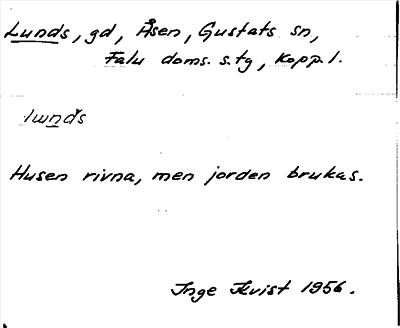 Lunds, gd, Åsen, Gustafs sn,
Falu doms. s. tg, Kopp. l.
Husen rivna, men jorden brukas.
Inge Kvist 1956.